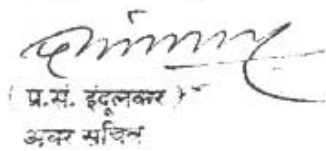 ( प्र.सं. इंदूलकर )
अवर सचिव